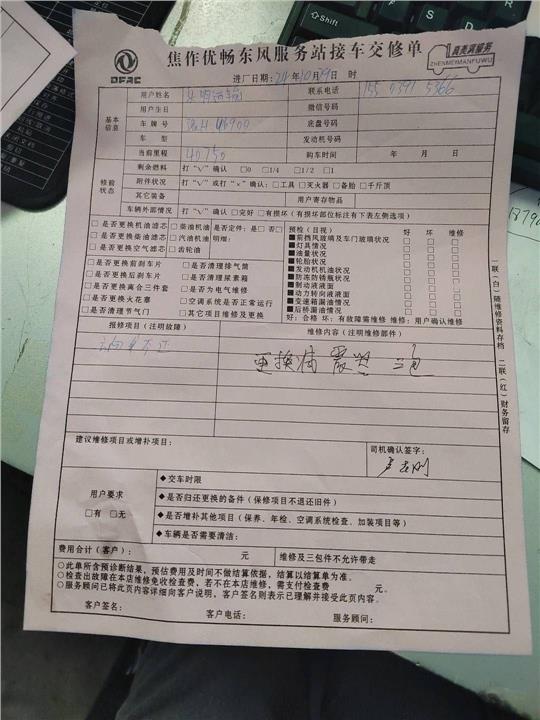 DFAC
焦作优畅东风服务站接车交修单
真美满服务
ZHENMEIMANFUWU
进厂日期:24年10月29日 时
基本信息
用户姓名
联系电话
155 0391 5366
用户生日
微信号码
车牌号
底盘号码
车型
发动机号码
当前里程
40750
购车时间
年 月 日
修前状态
剩余燃料 打"√"确认 □0 □1/4 □1/2 □1
附件状况 打"√"或打"×"确认:□工具 □灭火器 □备胎 □千斤顶
其它装备
用户寄存物品
车辆外部情况 打"√"确认 □完好 □有损坏(有损坏部位标注有下表左侧选项)
□是否更换机油滤芯
□是否更换柴油滤芯
□是否更换空气滤芯
□柴油机油
□汽油机油
□齿轮油
是否定件:□是 □否
明细:
预检(目视) 好 坏 维修
■前挡风玻璃及车门玻璃状况
■灯具情况
■油量状况
■轮胎状况
■发动机机油状况
■防冻防锈瓶状况
■制动液液面
■动力转向液液面
■变速箱漏油情况
■后桥漏油情况
好:合格 坏:有故障需维修 维修:用户确认维修
□是否更换前刹车片
□是否更换后刹车片
□是否更换离合三件套
□是否更换火花塞
□是否清理节气门
□是否清理排气筒
□是否清理尿素箱
□是否为电气维修
□空调系统是否正常运行
□其它项目维修及更换
报修项目(注明故障)
维修内容(注明维修部件)
更换
建议维修项目或增补项目:
司机确认签字:
用户要求
□有 □无
◆交车时限
◆是否归还更换的备件(保修项目不退还旧件)
◆是否增补其他项目(保养、年检、空调系统检查、加装项目等)
◆车辆是否需要清洁:
费用合计(客户): 元
维修及三包件不允许带走
○此单所含预诊断结果,预估费用及时间不做结算依据,结算以结算单为准。
○检查出故障在本店维修免收检查费,若不在本店维修,需支付检查费 元。
○服务顾问已将此页内容详细向客户说明,客户签名则表示已理解并接受此页内容。
客户签名: 客户电话: 服务顾问:
一联(白)随维修资料存档 二联(红)财务留存
Shift